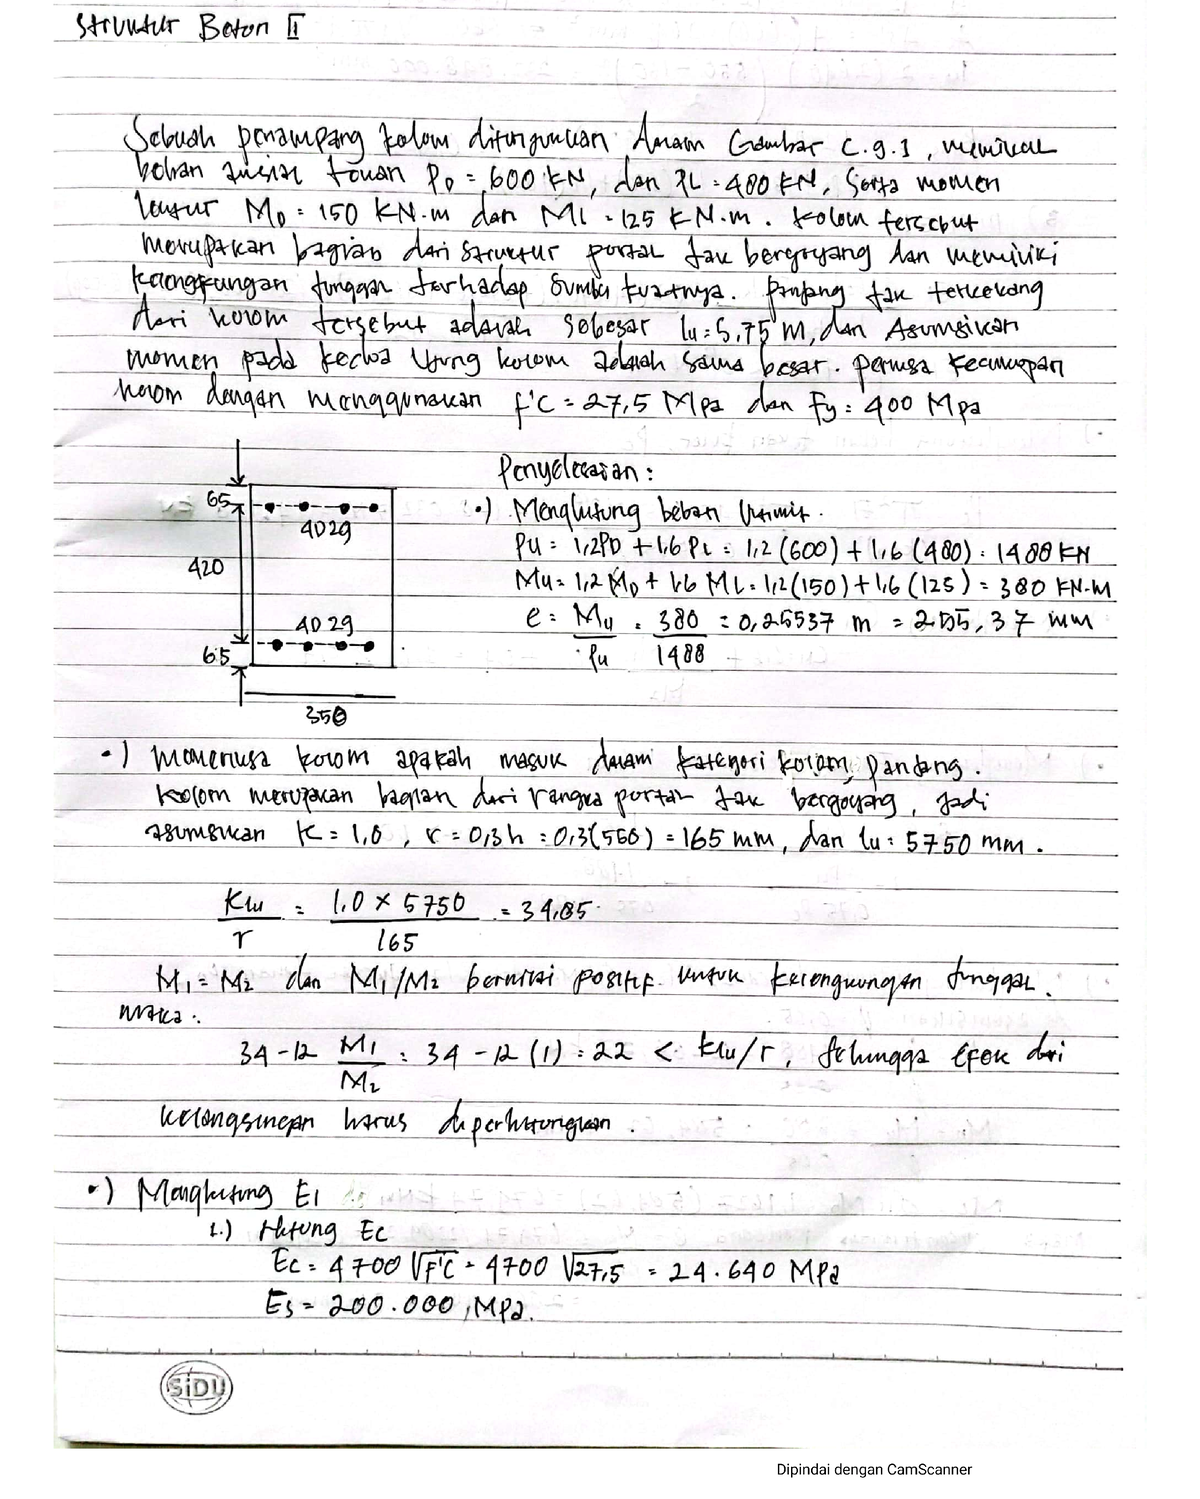 Struktur Beton II
Sebuah penampang kolom ditunjukkan dalam Gambar C.9.1, memikul
beban aksial tekan PD = 600 KN, dan PL = 480 KN, serta momen
lentur MD = 150 KN.m dan ML = 125 KN.m. Kolom tersebut
merupakan bagian dari struktur portal tak bergoyang dan memiliki
kelengkungan tunggal terhadap sumbu kuatnya. Panjang tak terkekang
dari kolom tersebut adalah sebesar lu = 5,75 m, dan Asumsikan
momen pada kedua Ujung kolom adalah sama besar. Periksa kecukupan
kolom dengan menggunakan f'c = 27,5 Mpa dan Fy = 400 Mpa
65
4D29
420
4D29
65
350
Penyelesaian :
•) Menghitung beban Ultimit.
PU = 1,2PD + 1,6 PL = 1,2 (600) + 1,6 (480) = 1488 KN
Mu = 1,2 MD + 1,6 ML = 1,2 (150) + 1,6 (125) = 380 KN-m
e = Mu/Pu = 380/1488 = 0,25537 m = 255,37 mm
•) Memeriksa kolom apakah masuk dalam kategori kolom panjang.
Kolom merupakan bagian dari rangka portal tak bergoyang, Jadi
asumsikan K = 1,0 , r = 0,3 h = 0,3(550) = 165 mm, dan lu = 5750 mm.
Klu/r = 1.0 × 5750/165 = 34,85
M1 = M2 dan M1/M2 bernilai positif untuk kelengkungan tunggal.
maka :
34 - 12 M1/M2 = 34 - 12 (1) = 22 < klu/r, Sehingga efek dari
kelangsingan harus diperhitungkan.
•) Menghitung EI
1.) Hitung Ec
Ec = 4700 √F'C = 4700 √27,5 = 24.640 MPa
Es = 200.000 MPa.
SiDU
Dipindai dengan CamScanner